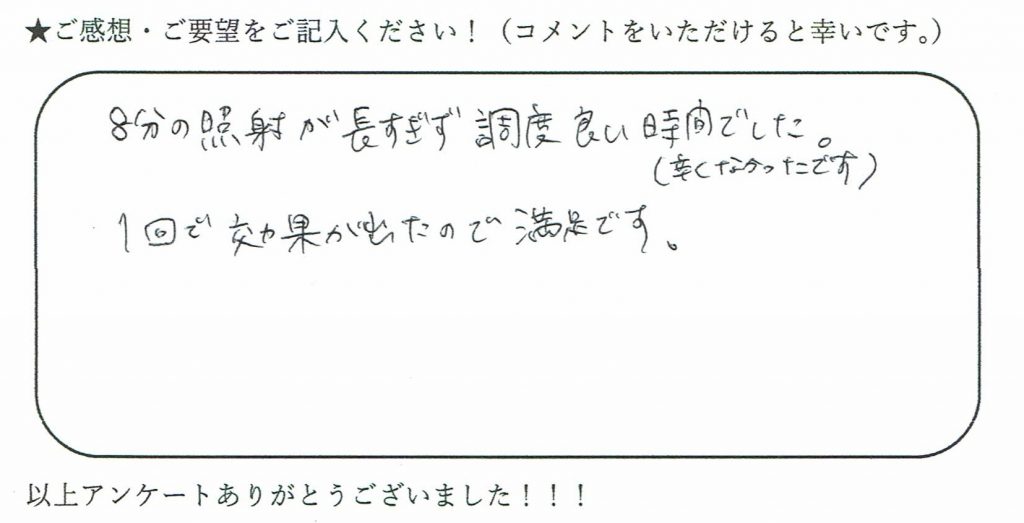 ★ご感想・ご要望をご記入ください！（コメントをいただけると幸いです。）
8分の照射が長すぎず調度良い時間でした。
(辛くなかったです)
1回で効果が出たので満足です。
以上アンケートありがとうございました！！！